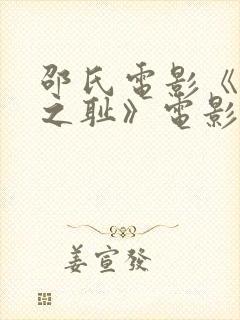 邵氏電影《
之耻》電影
姜宣發